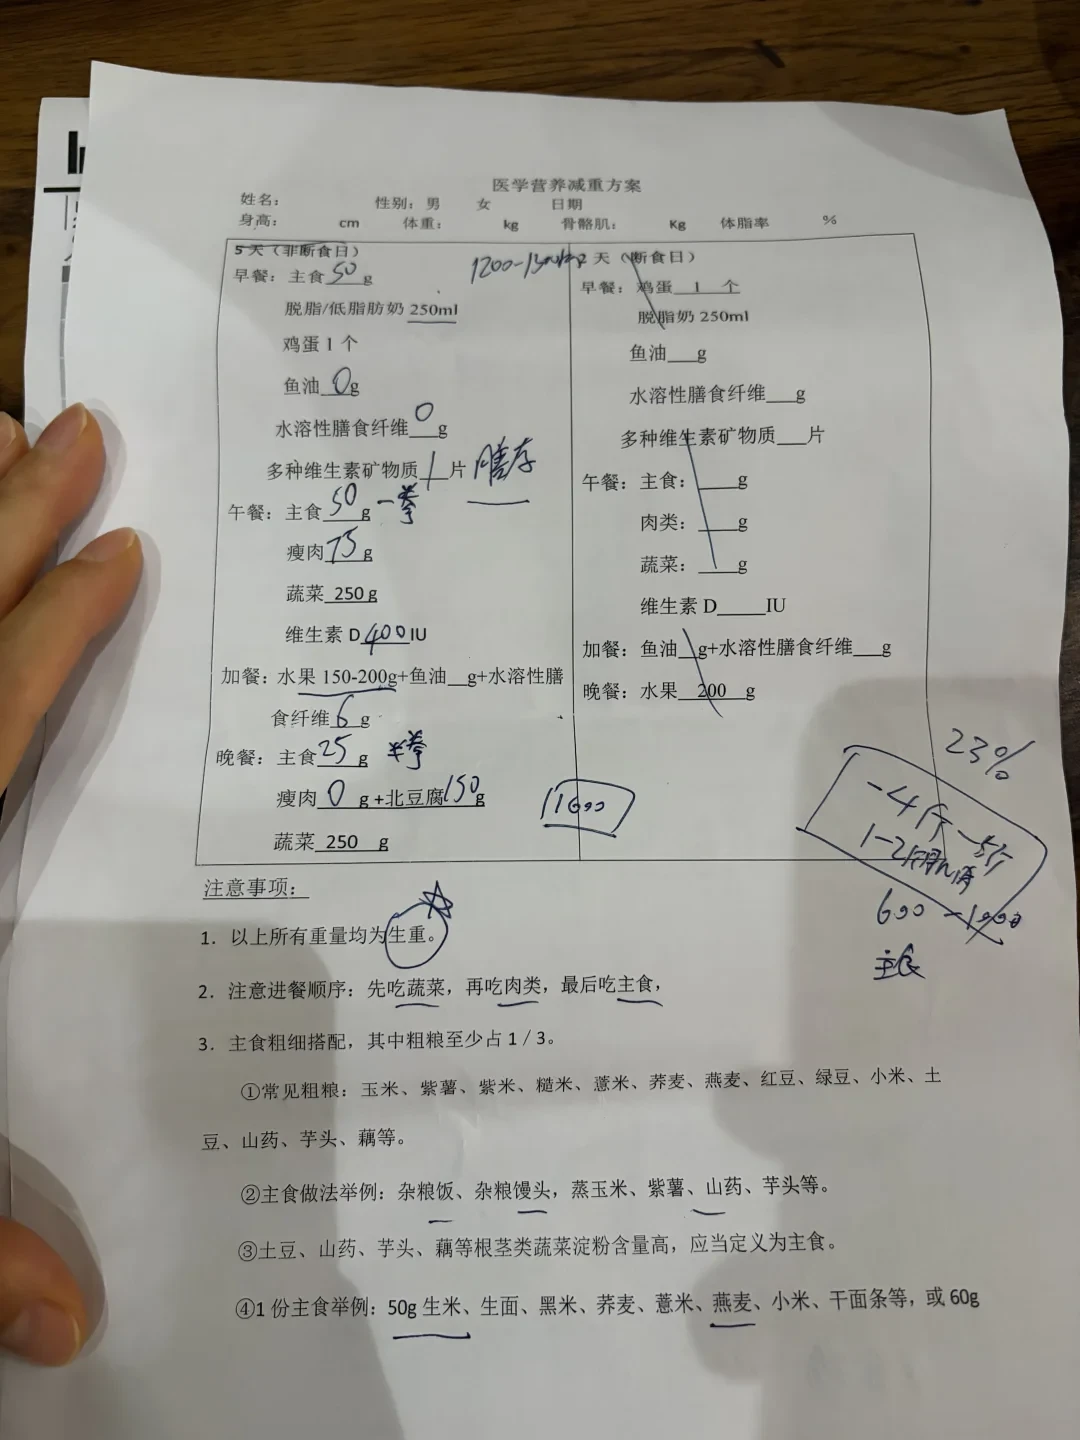 医学营养减重方案
姓名： 性别：男 女 日期
身高： cm 体重： kg 骨骼肌： Kg 体脂率 %
5 天（非断食日）
早餐：主食50g
脱脂/低脂肪奶 250ml
鸡蛋 1 个
鱼油0g
水溶性膳食纤维0g
多种维生素矿物质1片 膳存
午餐：主食50g 一拳
瘦肉75g
蔬菜 250 g
维生素 D 400 IU
加餐：水果 150-200g+鱼油__g+水溶性膳
食纤维6g
晚餐：主食25g 半拳
瘦肉 0 g +北豆腐150g
蔬菜 250 g
1200-1300
2 天（断食日）
早餐：鸡蛋 1 个
脱脂奶 250ml
鱼油___g
水溶性膳食纤维___g
多种维生素矿物质___片
午餐：主食：____g
肉类：____g
蔬菜：____g
维生素 D_____IU
加餐：鱼油__g+水溶性膳食纤维___g
晚餐：水果 200 g
23%
-4斤-5斤
1-2斤
600-1000
主食
注意事项：
1．以上所有重量均为生重。
2．注意进餐顺序：先吃蔬菜，再吃肉类，最后吃主食，
3．主食粗细搭配，其中粗粮至少占 1／3。
①常见粗粮：玉米、紫薯、紫米、糙米、薏米、荞麦、燕麦、红豆、绿豆、小米、土
豆、山药、芋头、藕等。
②主食做法举例：杂粮饭、杂粮馒头，蒸玉米、紫薯、山药、芋头等。
③土豆、山药、芋头、藕等根茎类蔬菜淀粉含量高，应当定义为主食。
④1 份主食举例：50g 生米、生面、黑米、荞麦、薏米、燕麦、小米、干面条等，或 60g